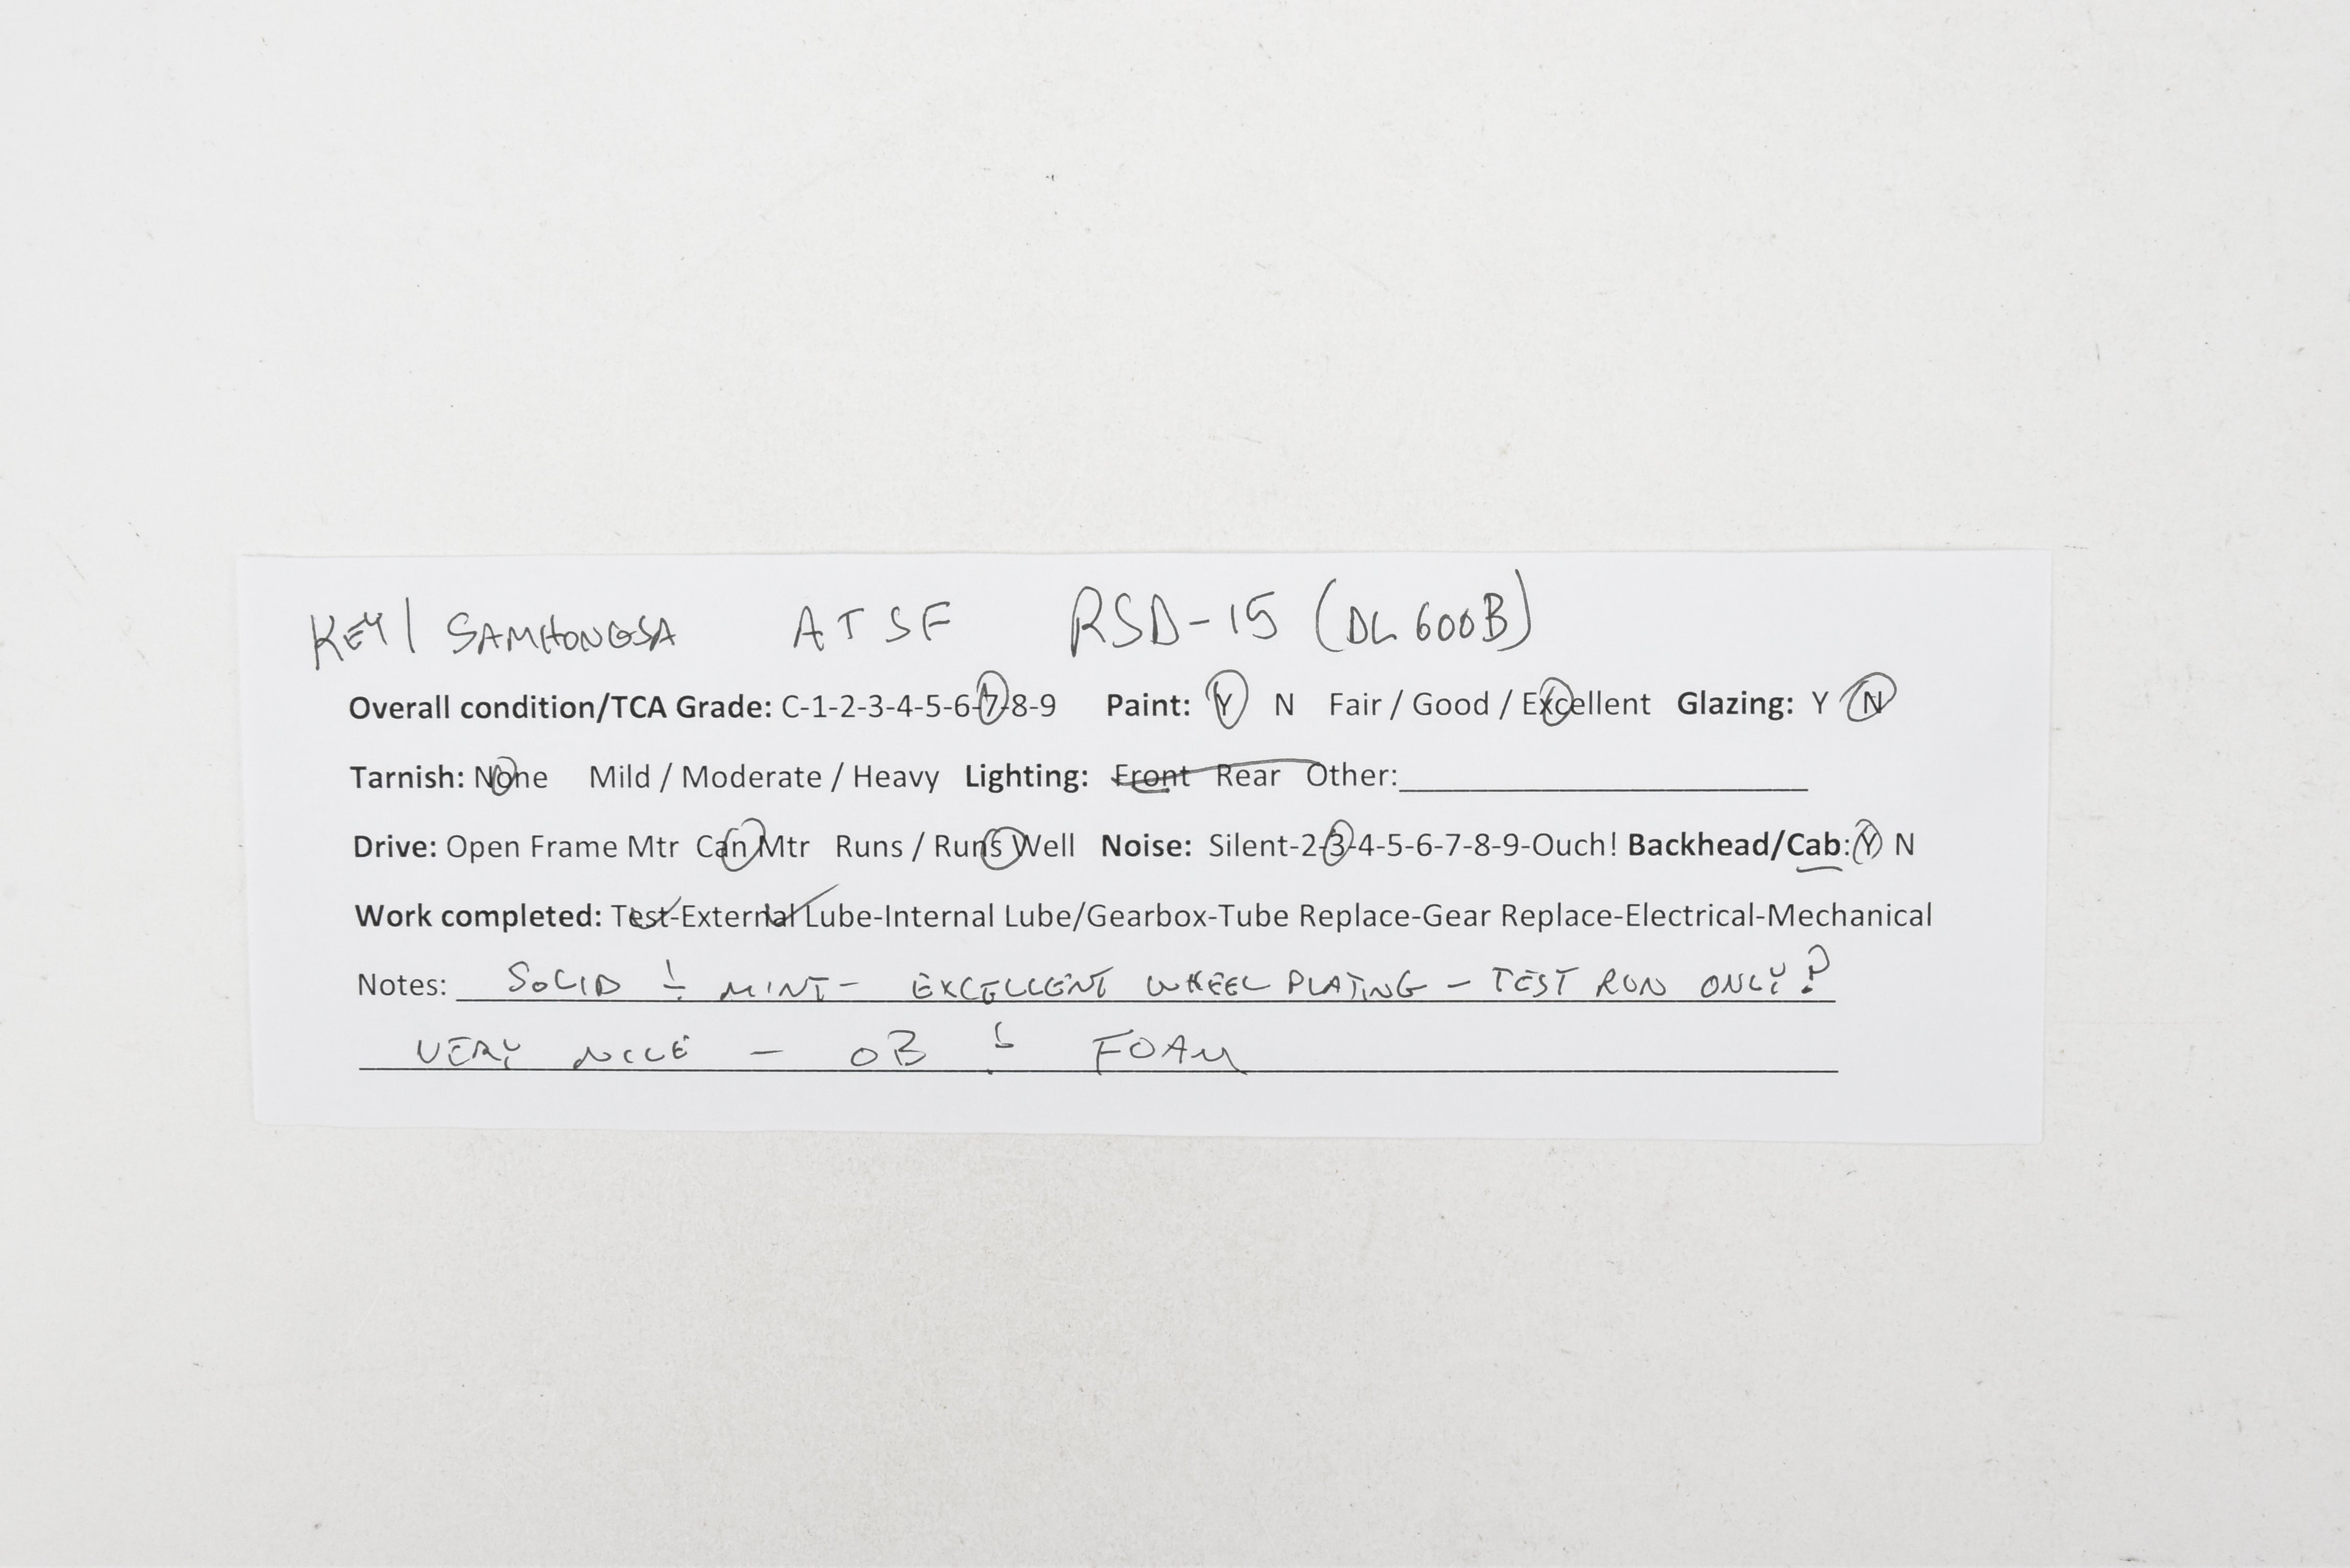 KEY/ SAMHONGSA ATSF RSD-15 (DL600B)
Overall condition/TCA Grade: C-1-2-3-4-5-6-7-8-9 Paint: Y N Fair / Good / Excellent Glazing: Y N
Tarnish: None Mild / Moderate / Heavy Lighting: Front Rear Other:
Drive: Open Frame Mtr Can Mtr Runs / Runs Well Noise: Silent-2-3-4-5-6-7-8-9-Ouch! Backhead/Cab: Y N
Work completed: Test-External Lube-Internal Lube/Gearbox-Tube Replace-Gear Replace-Electrical-Mechanical
Notes: SOLID & MINT- EXCELLENT WHEEL PLATING - TEST RUN ONLY?
VERY NICE - OB & FOAM